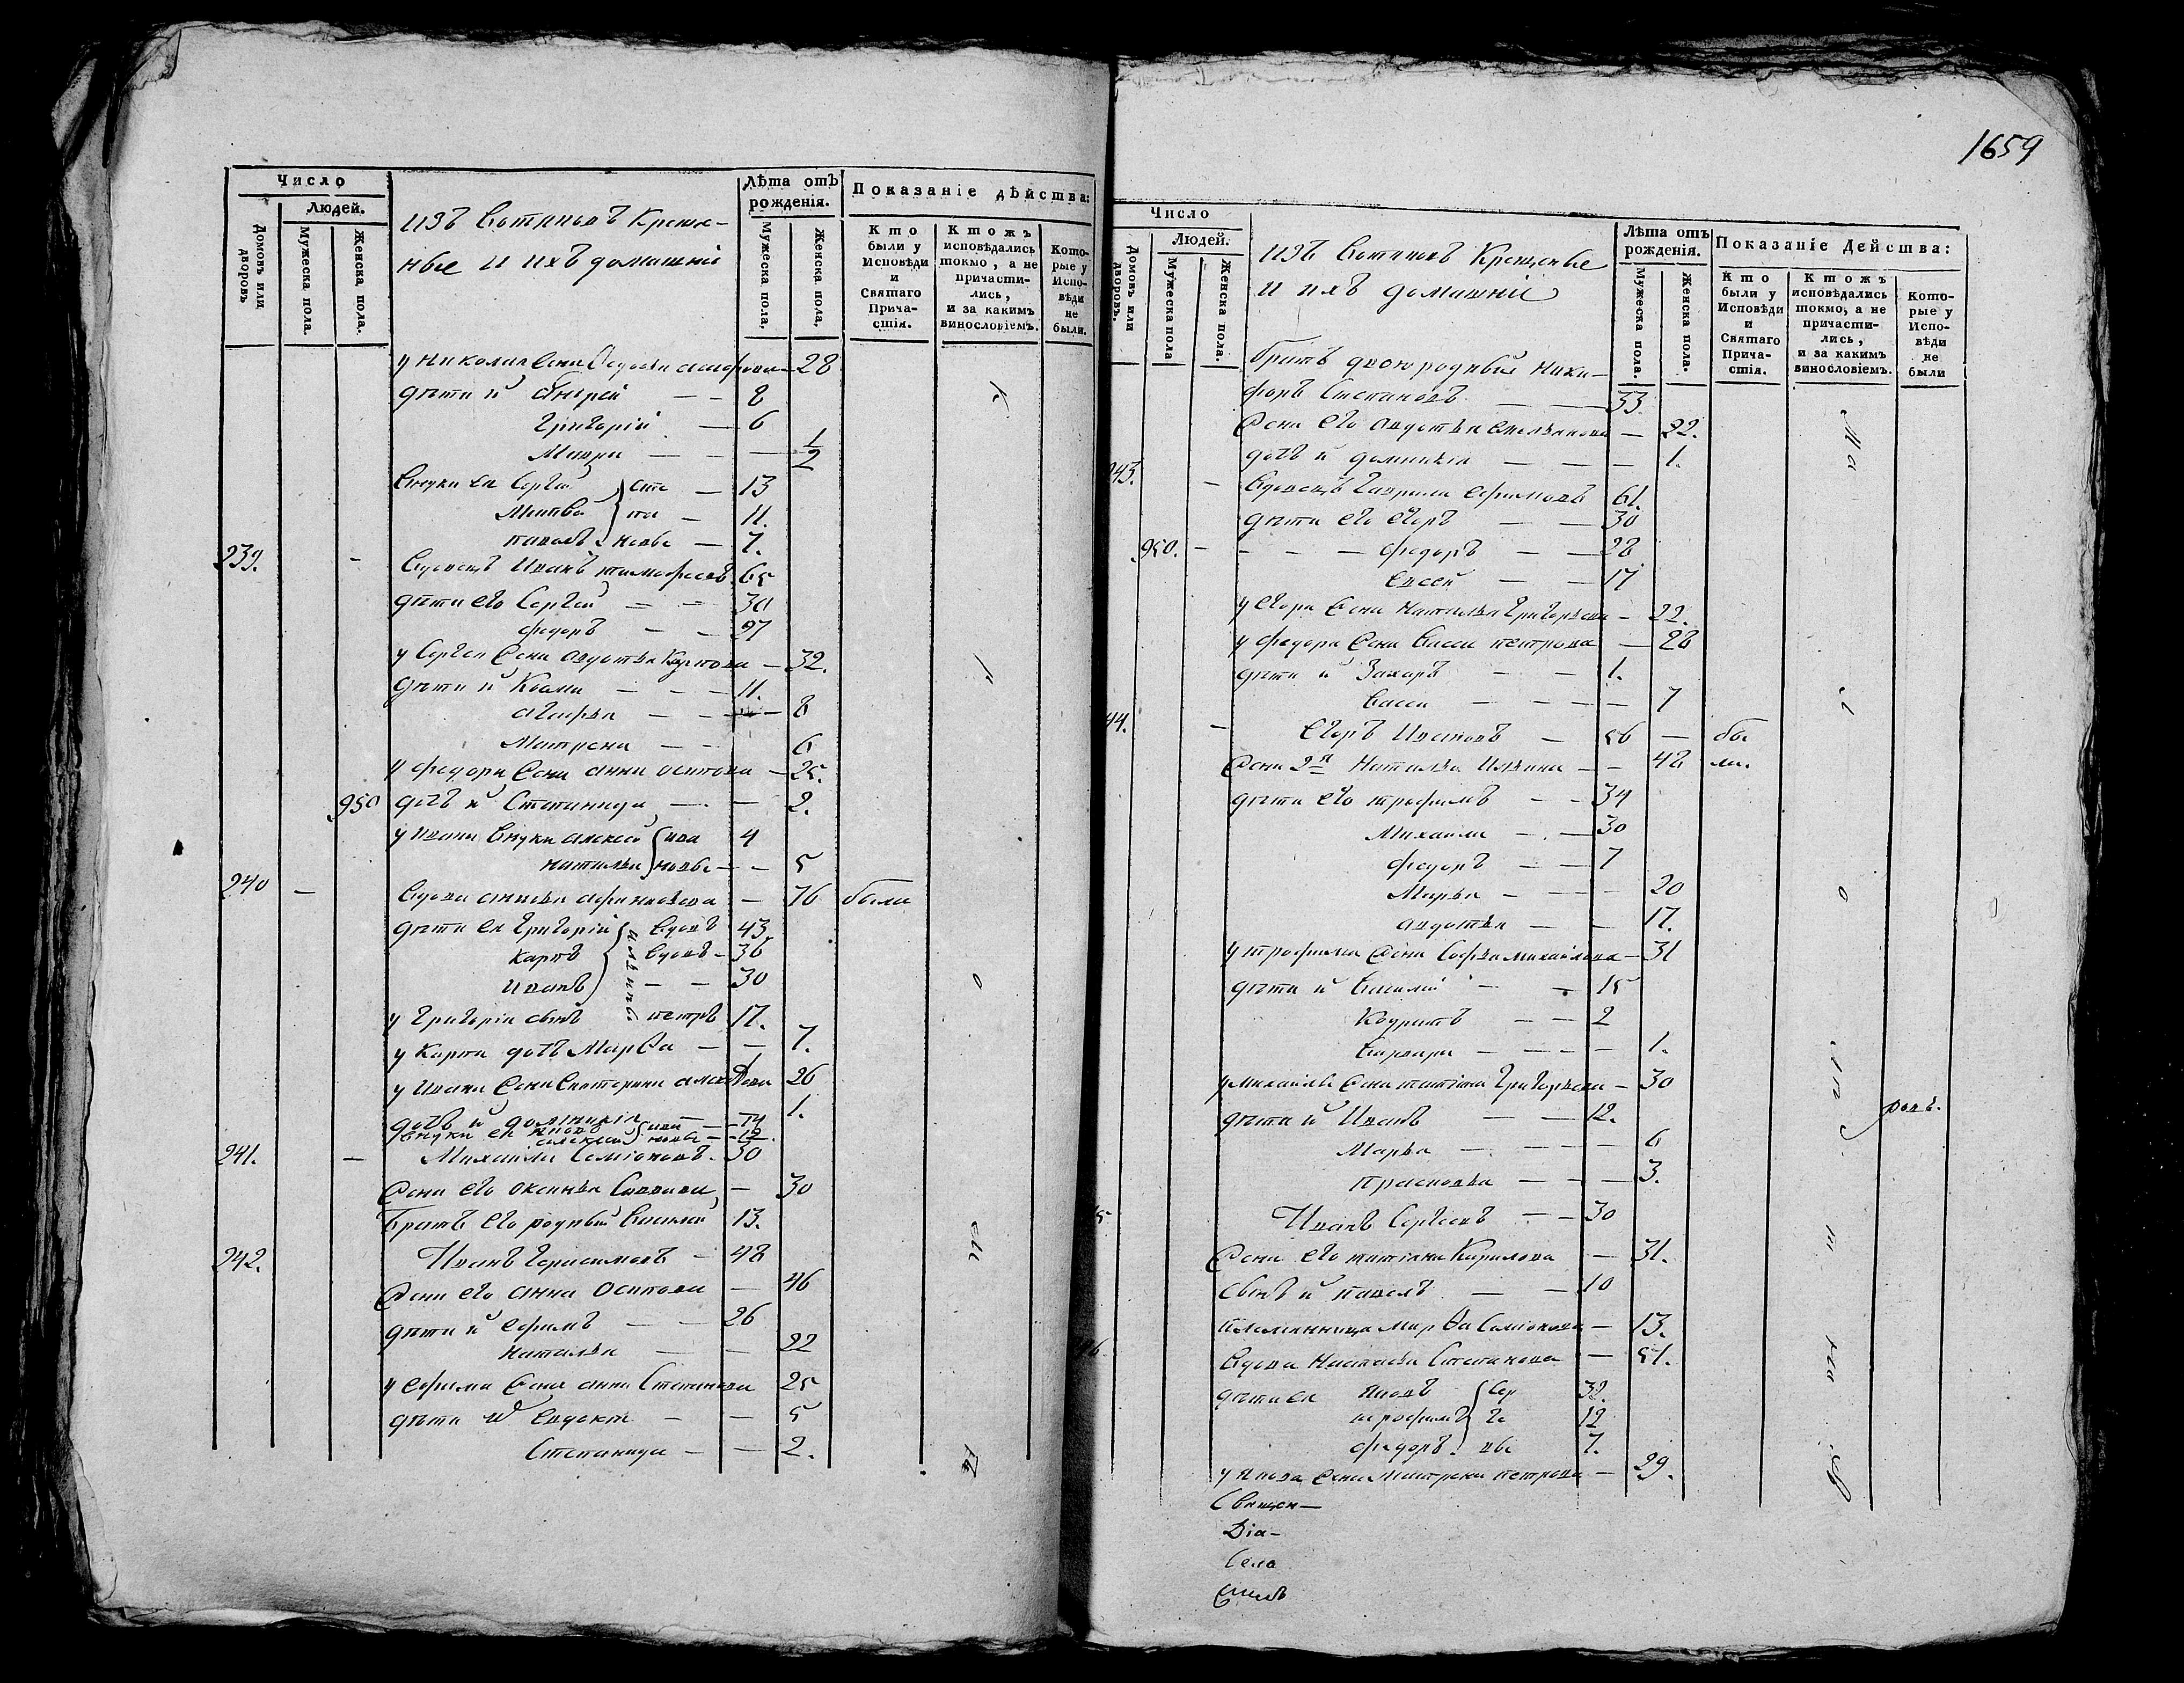 Число
Людей.
Домовъ или дворовъ
Мужеска пола.
Женска пола.
изъ Вотяковъ Креще-
ные и ихъ домашніи
Лѣта отъ рожденія.
Мужеска пола,
Женска пола,
Показаніе дѣйства:
Кто были у Исповѣди и Святаго Прича-стія.
Ктожъ исповѣдались токмо, а не причасти-лись, и за какимъ винословіемъ.
Кото-рые у Испо-вѣди не были.
у Николая жена Федосья 28
дѣти ихъ Андрей — — 8
Григорій — 6
Мавра — — — 1/2
внуки ея Сергѣй Сте — 13
Матвѣй па — 11.
Павелъ новы — 7.
239. — Вдовецъ Иванъ Тимофеевъ 65
дѣти его Сергѣй — — 30
Федоръ — — 27
у Сергѣя жена Авдотья Карпова — 32.
дѣти ихъ Козма — — — 11.
Агафья — — — 8
Матрена — — 6
у Федора жена Анна Осипова — 25.
950 дочь ихъ Степанида — — 2.
у Ивана внуки Алексѣй Ива 4
Наталья новы — — 5
240 — Вдова Афанасьева — 76 были
дѣти ея Григорій вдовъ 43
Карпъ вдовъ — 36
Иванъ — — 30
у Григорія сынъ Петръ 17.
у Карпа дочь Марѳа — — 7.
у Ивана жена Екатерина 26
дочь ихъ 1.
внуки ея 14
Алексѣй 12
241. — Михаила Семіоновъ — 30
жена его Оксинья Саввина — 30
братъ его родный Василій 13.
242. Иванъ Герасимовъ — 48
жена его Анна Осипова — 46
дѣти ихъ Ефимъ — — 26
Наталья — — 22
у Ефима жена Анна Степанова 25
дѣти ихъ — — 5
Степанида — — 2.
1659
Число
Людей.
Домовъ или дворовъ.
Мужеска пола
Женска пола.
изъ Вотяковъ Крещеные
и ихъ домашніи
Лѣта отъ рожденія.
Мужеска пола.
Женска пола.
Показаніе Действа:
Кто были у Исповѣди и Святаго Прича-стія.
Ктожъ исповѣдались токмо, а не причасти-лись, и за какимъ винословіемъ.
Кото-рые у Испо-вѣди не были
братъ двоюродный Ники-
форъ Степановъ — — 33
жена его Авдотья Емельянова — 22.
дочь ихъ — — — 1.
243. — Вдовецъ Гаврила Ефимовъ 61.
дѣти его Егоръ — — 30
950. — — — — Федоръ — — 28
Евсей — — 17
у Егора жена Наталья Григорьева — 22.
у Федора жена Васса Петрова — 28
дѣти ихъ Захаръ — — 1.
Васса — — — — 7
44. — Егоръ Ивановъ — 56 — бы
жена 2я Наталья Ильина — — 48 ли.
дѣти его Трофимъ — — 34
Михаила — — 30
Федоръ — — 7
Марья — — — 20
Авдотья — — 17.
у Трофима жена Софья Михайлова — 31
дѣти ихъ Василій — — 15
— — 2
Варвара — — — — 1.
у Михайлы жена Татіана Григорьева — 30
дѣти ихъ Иванъ — — 12.
Марья — — — — 6
Прасковья — — — 3.
5 Иванъ Сергѣевъ — — 30
жена его Татіана Кирилова — 31.
сынъ ихъ Павелъ — — 10
племянница Марѳа Семіонова — 13.
6. Вдова Настасья Степанова — 51.
дѣти ея Яковъ Сер 32.
Трофимъ ге 12
Федоръ евы 7.
у Якова жена Матрена Петрова — 29.
Священ—
Діа—
Села